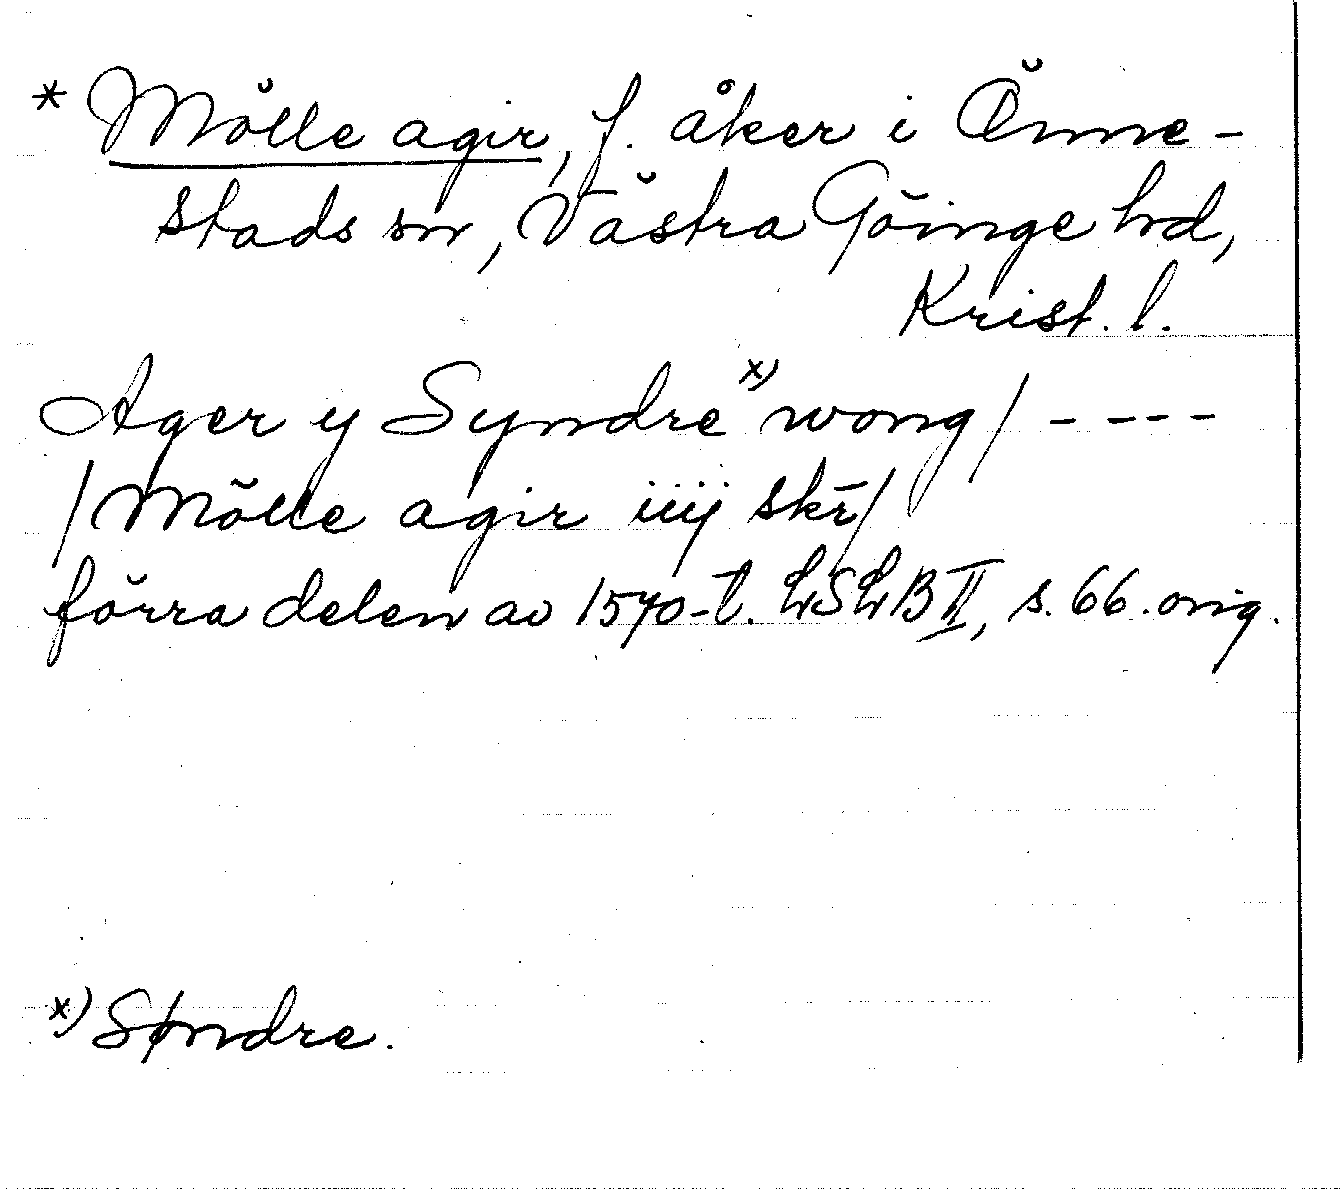 * Mölle agir, f. åker i Önne-
stads sn, Västra Göinge hd,
Krist. l.
Ager y Syndre x) wong / - - - -
/ Mölle agir iiij skr̄ /
förra delen av 1570-t. LSLB II, s. 66. orig.
x) Søndre.